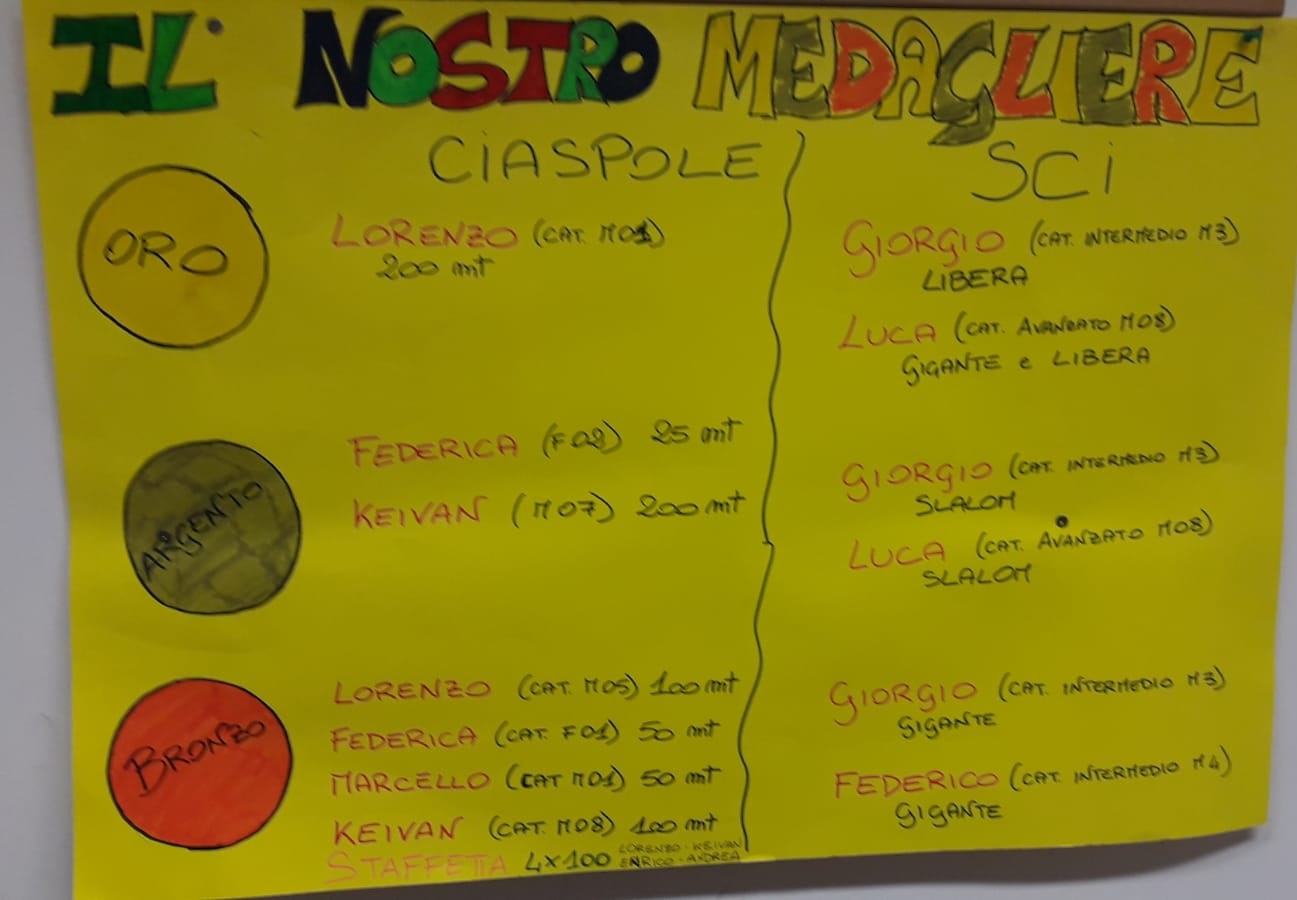 IL NOSTRO MEDAGLIERE
CIASPOLE
ORO
LORENZO (CAT. M01)
200 mt
ARGENTO
FEDERICA (F02) 25 mt
KEIVAN (M07) 200 mt
BRONZO
LORENZO (CAT. M05) 100 mt
FEDERICA (CAT. F01) 50 mt
MARCELLO (CAT M01) 50 mt
KEIVAN (CAT. M08) 100 mt
STAFFETTA 4x100 LORENZO - KEIVAN
ENRICO - ANDREA
SCI
GIORGIO (CAT. INTERMEDIO M3)
LIBERA
LUCA (CAT. AVANZATO M08)
GIGANTE e LIBERA
GIORGIO (CAT. INTERMEDIO M3)
SLALOM
LUCA (CAT. AVANZATO M08)
SLALOM
GIORGIO (CAT. INTERMEDIO M3)
GIGANTE
FEDERICO (CAT. INTERMEDIO M4)
GIGANTE